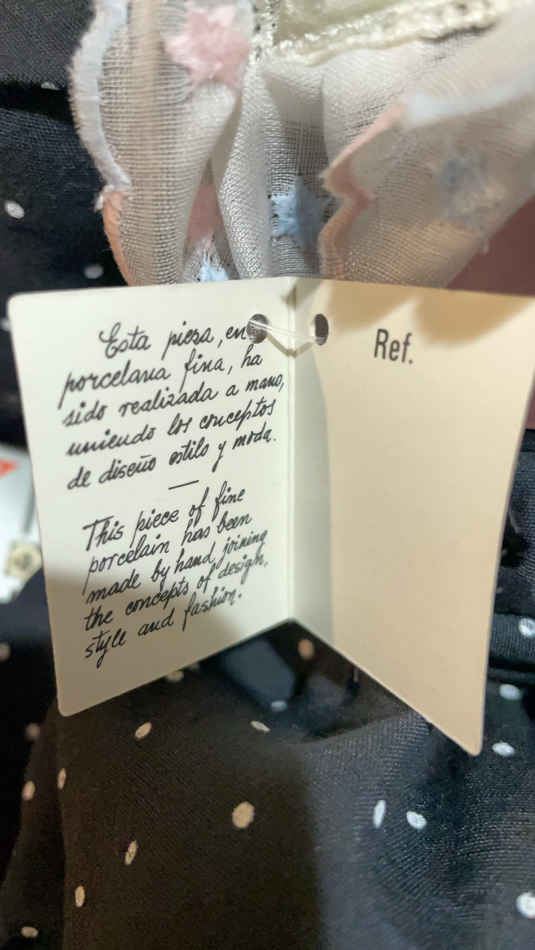 Esta pieza, en
porcelana fina, ha
sido realizada a mano,
uniendo los conceptos
de diseño estilo y moda.
This piece of fine
porcelain has been
made by hand joining
the concepts of design,
style and fashion.
Ref.